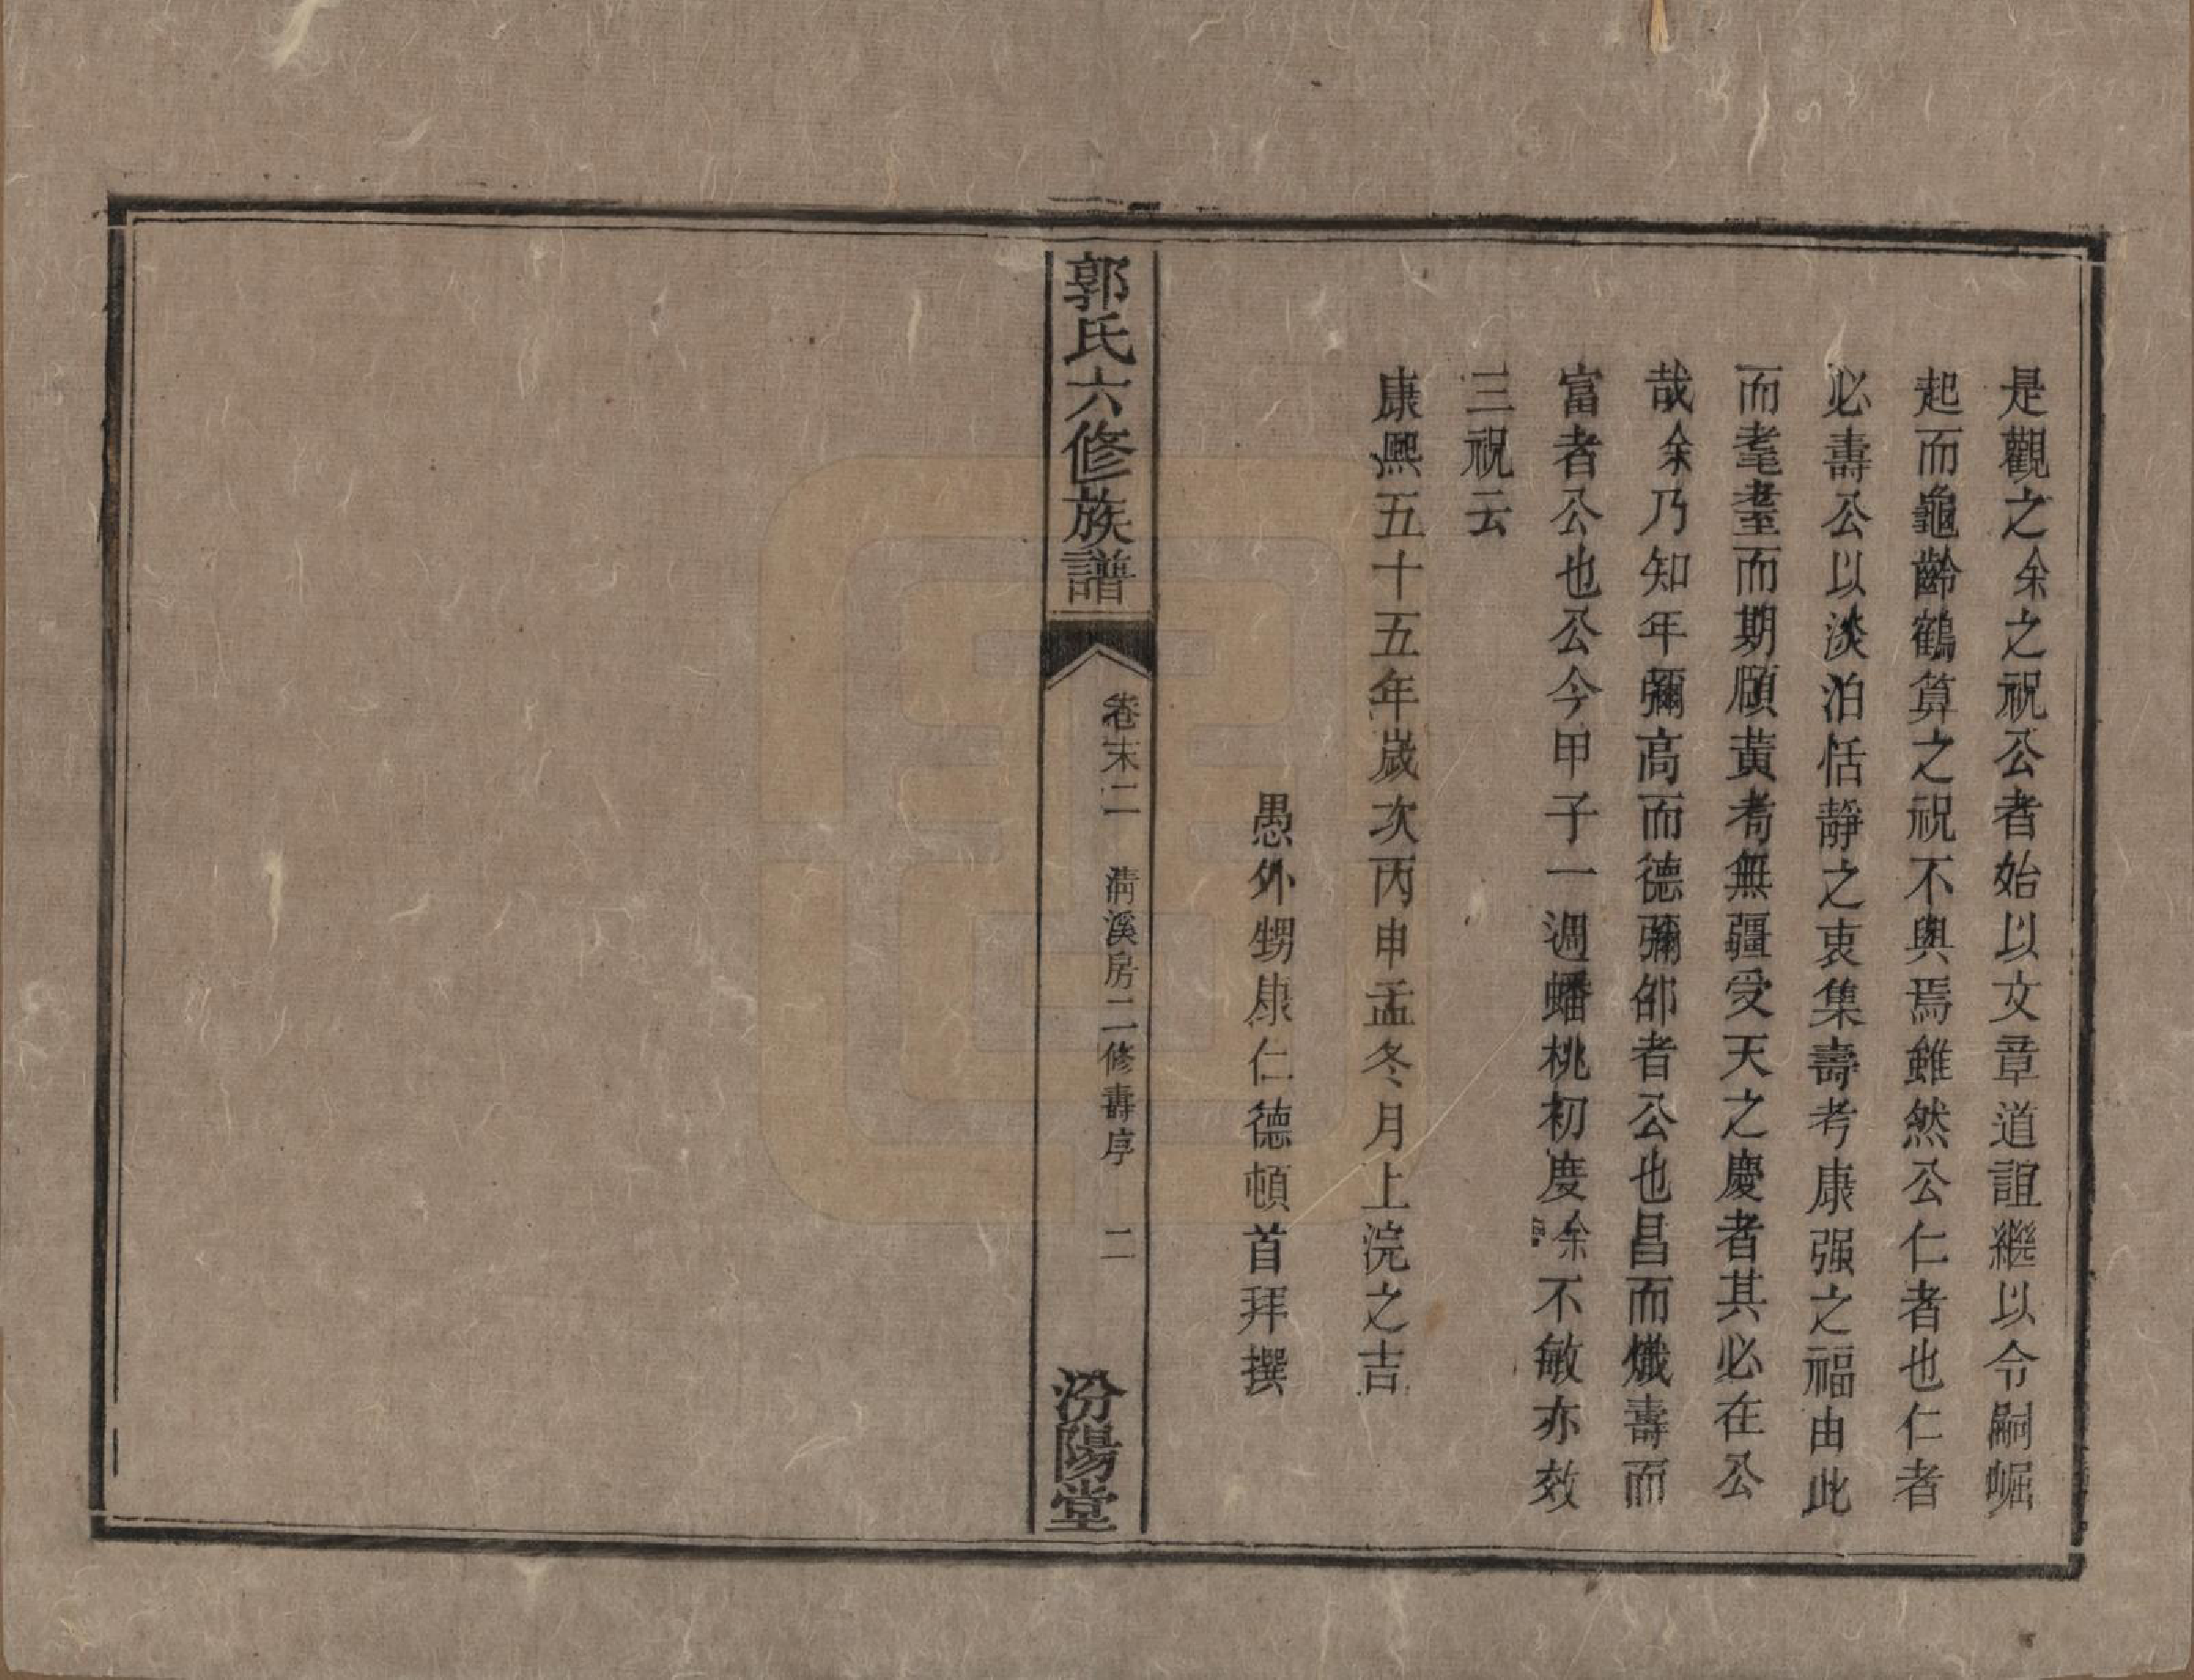 是觀之余之祝公者始以文章道誼繼以令嗣崛
起而龜齡鶴算之祝不與焉雖然公仁者也仁者
必壽公以淡泊恬靜之衷集壽考康强之福由此
而耄耋而期頤黃耇無疆受天之慶者其必在公
哉余乃知年彌高而德彌邵者公也昌而熾壽而
富者公也公今甲子一週蟠桃初度余不敏亦效
三祝云
康熙五十五年歲次丙申孟冬月上浣之吉
愚外甥康仁德頓首拜撰
郭氏六修族譜
卷末二 清溪房二修壽序 二
汾陽堂